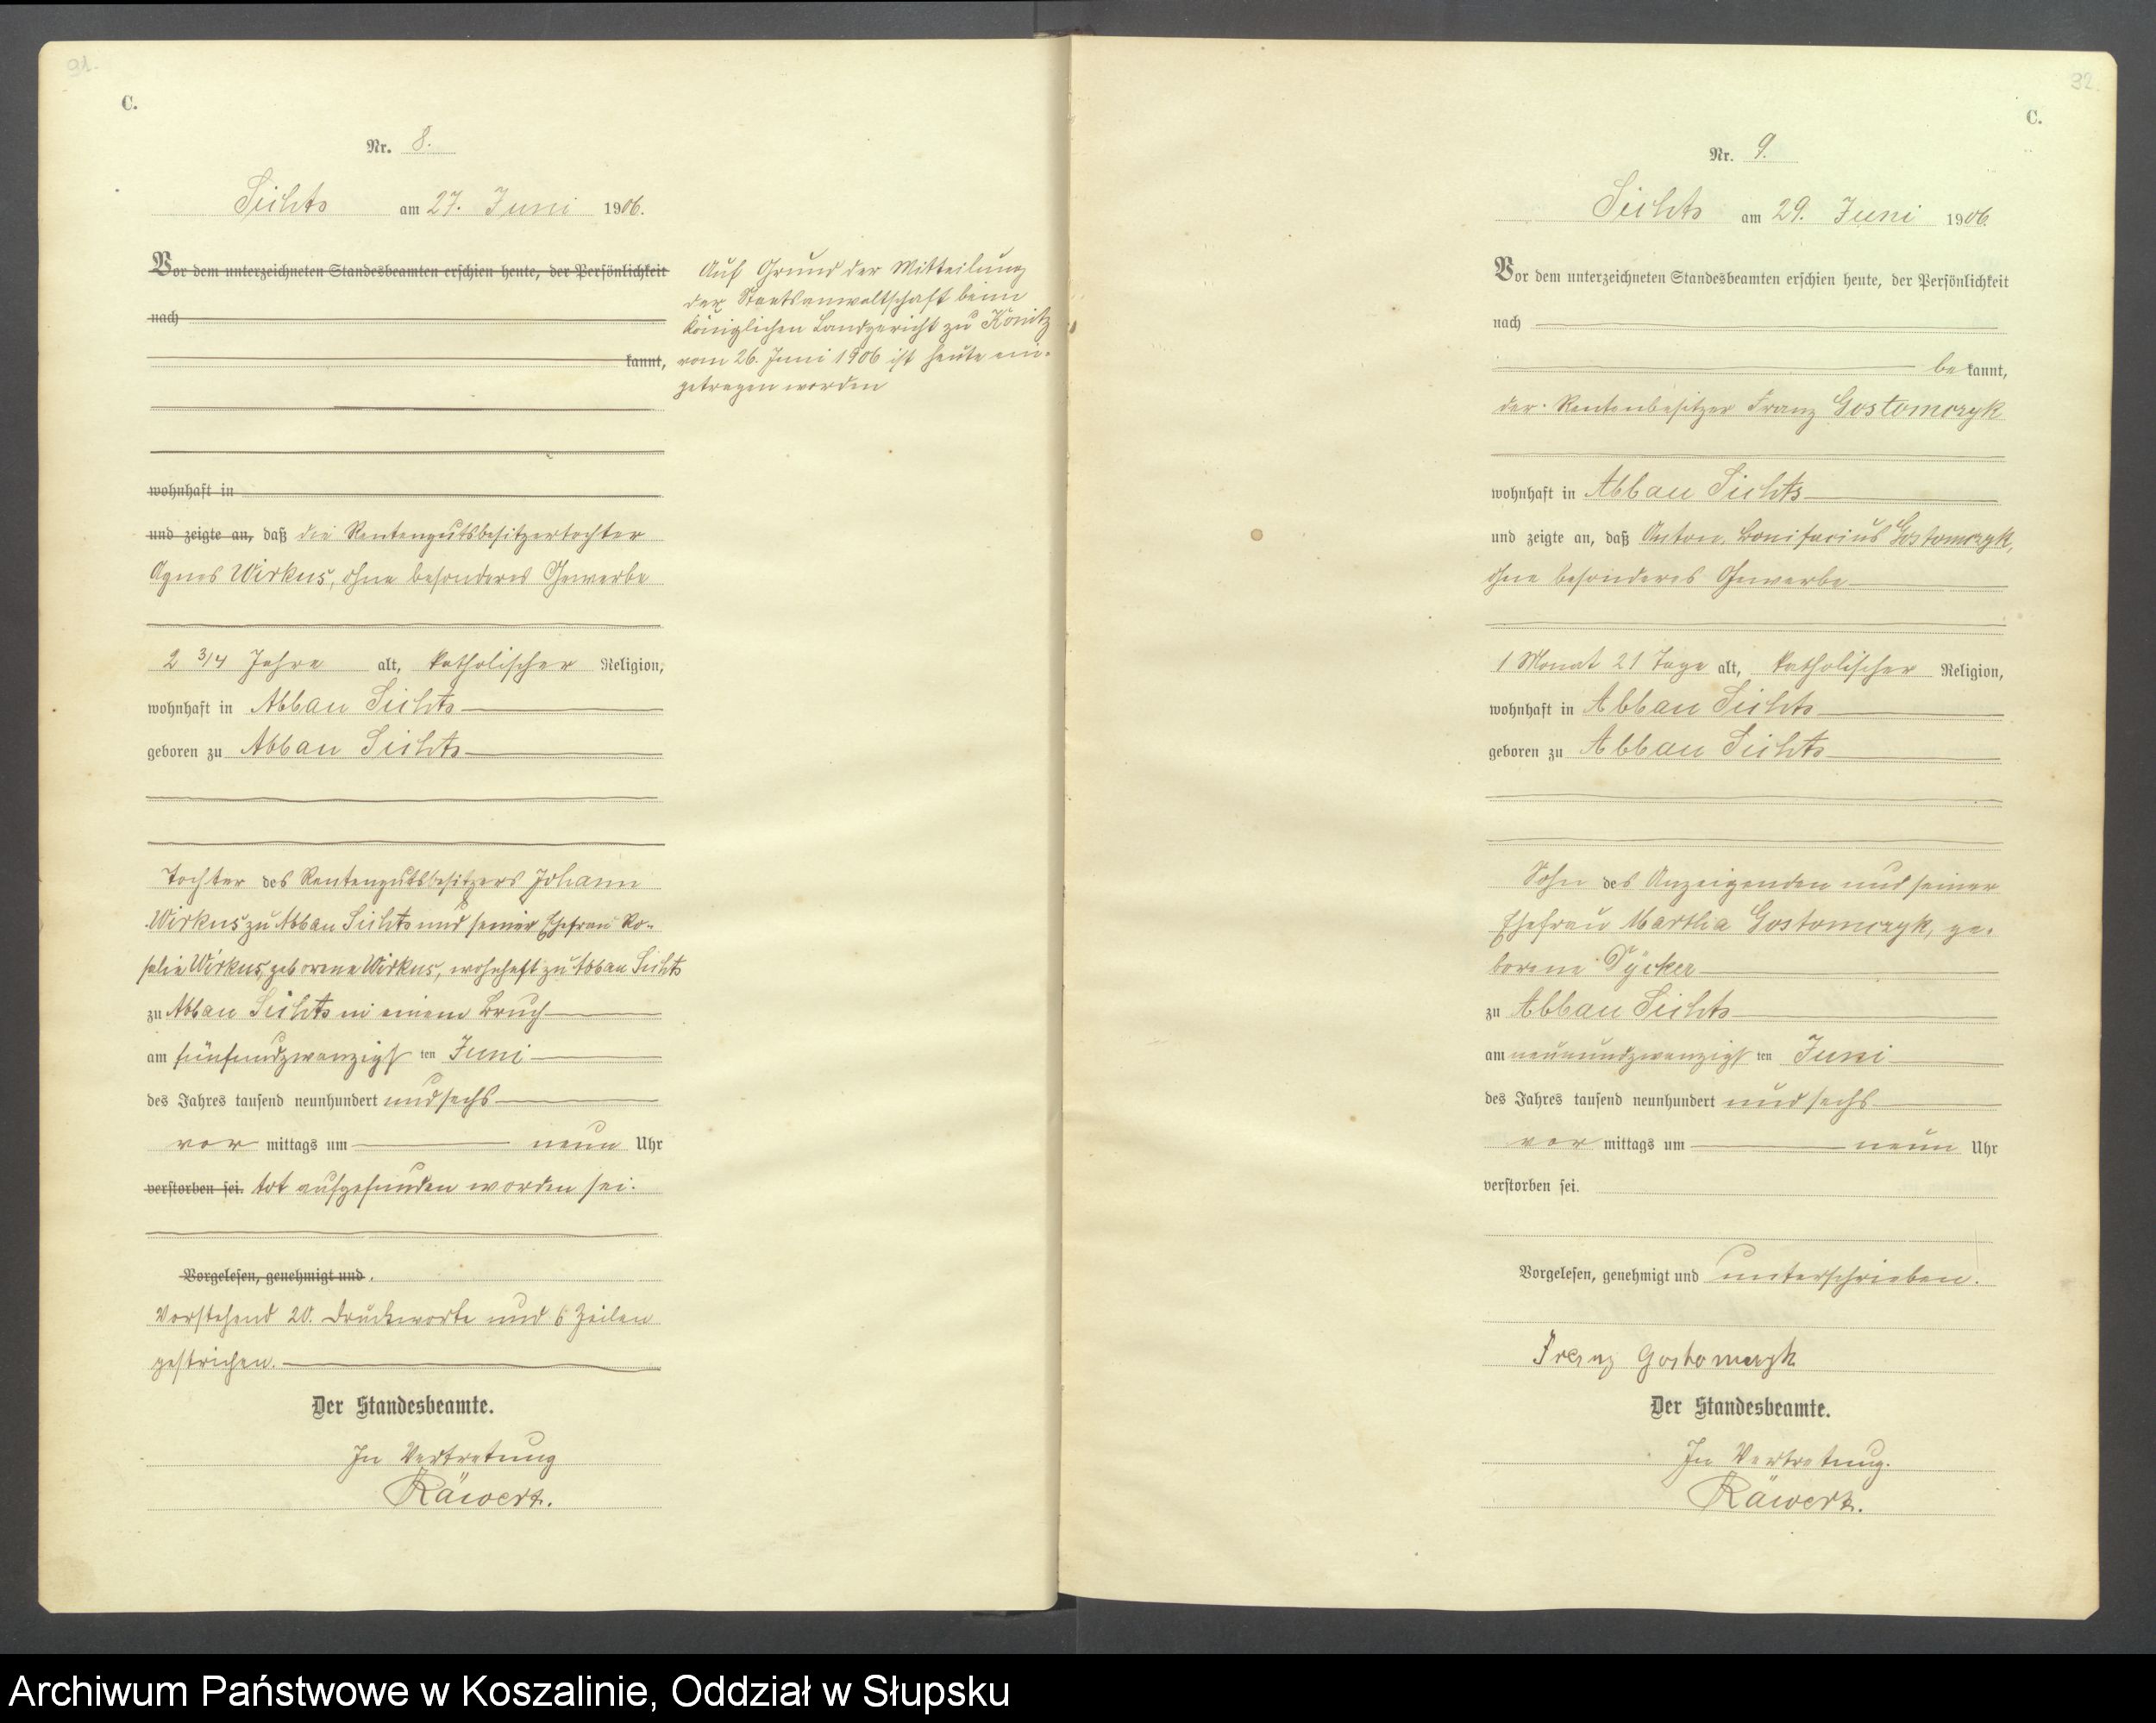 91.
C.
Nr. 8.
Sichts am 27. Juni 1906.
Vor dem unterzeichneten Standesbeamten erschien heute, der Persönlichkeit
nach
kannt,
wohnhaft in
und zeigte an, daß die Rentengutsbesitzertochter
Agnes Wirkus, ohne besonderes Gewerbe
2 3/4 Jahre alt, katholischer Religion,
wohnhaft in Abbau Sichts
geboren zu Abbau Sichts
Tochter des Rentengutsbesitzers Johann
Wirkus zu Abbau Sichts und seiner Ehefrau Ro-
salie Wirkus, geborene Wirkus, wohnhaft zu Abbau Sichts
zu Abbau Sichts in einem Bruch
am fünfundzwanzigsten Juni
des Jahres tausend neunhundert und sechs
vor mittags um neun Uhr
verstorben sei. tot aufgefunden worden sei.
Vorgelesen, genehmigt und.
Vorstehend 20. Druckworte und 6 Zeilen
gestrichen.
Der Standesbeamte.
In Vertretung
Räwert.
Auf Grund der Mitteilung
der Staatsanwaltschaft beim
Königlichen Landgericht zu Konitz
vom 26. Juni 1906 ist heute ein-
getragen worden
92.
C.
Nr. 9.
Sichts am 29. Juni 1906.
Vor dem unterzeichneten Standesbeamten erschien heute, der Persönlichkeit
nach
be kannt,
der Rentenbesitzer Franz Gostomczyk
wohnhaft in Abbau Sichts
und zeigte an, daß Anton, Bonifacius Gostomczyk,
ohne besonderes Gewerbe
1 Monat 21 Tage alt, katholischer Religion,
wohnhaft in Abbau Sichts
geboren zu Abbau Sichts
Sohn des Anzeigenden und seiner
Ehefrau Martha Gostomczyk, ge-
borene
zu Abbau Sichts
am neunundzwanzigsten Juni
des Jahres tausend neunhundert und sechs
vor mittags um neun Uhr
verstorben sei.
Vorgelesen, genehmigt und unterschrieben.
Franz Gostomczyk
Der Standesbeamte.
In Vertretung.
Räwert.
Archiwum Państwowe w Koszalinie, Oddział w Słupsku